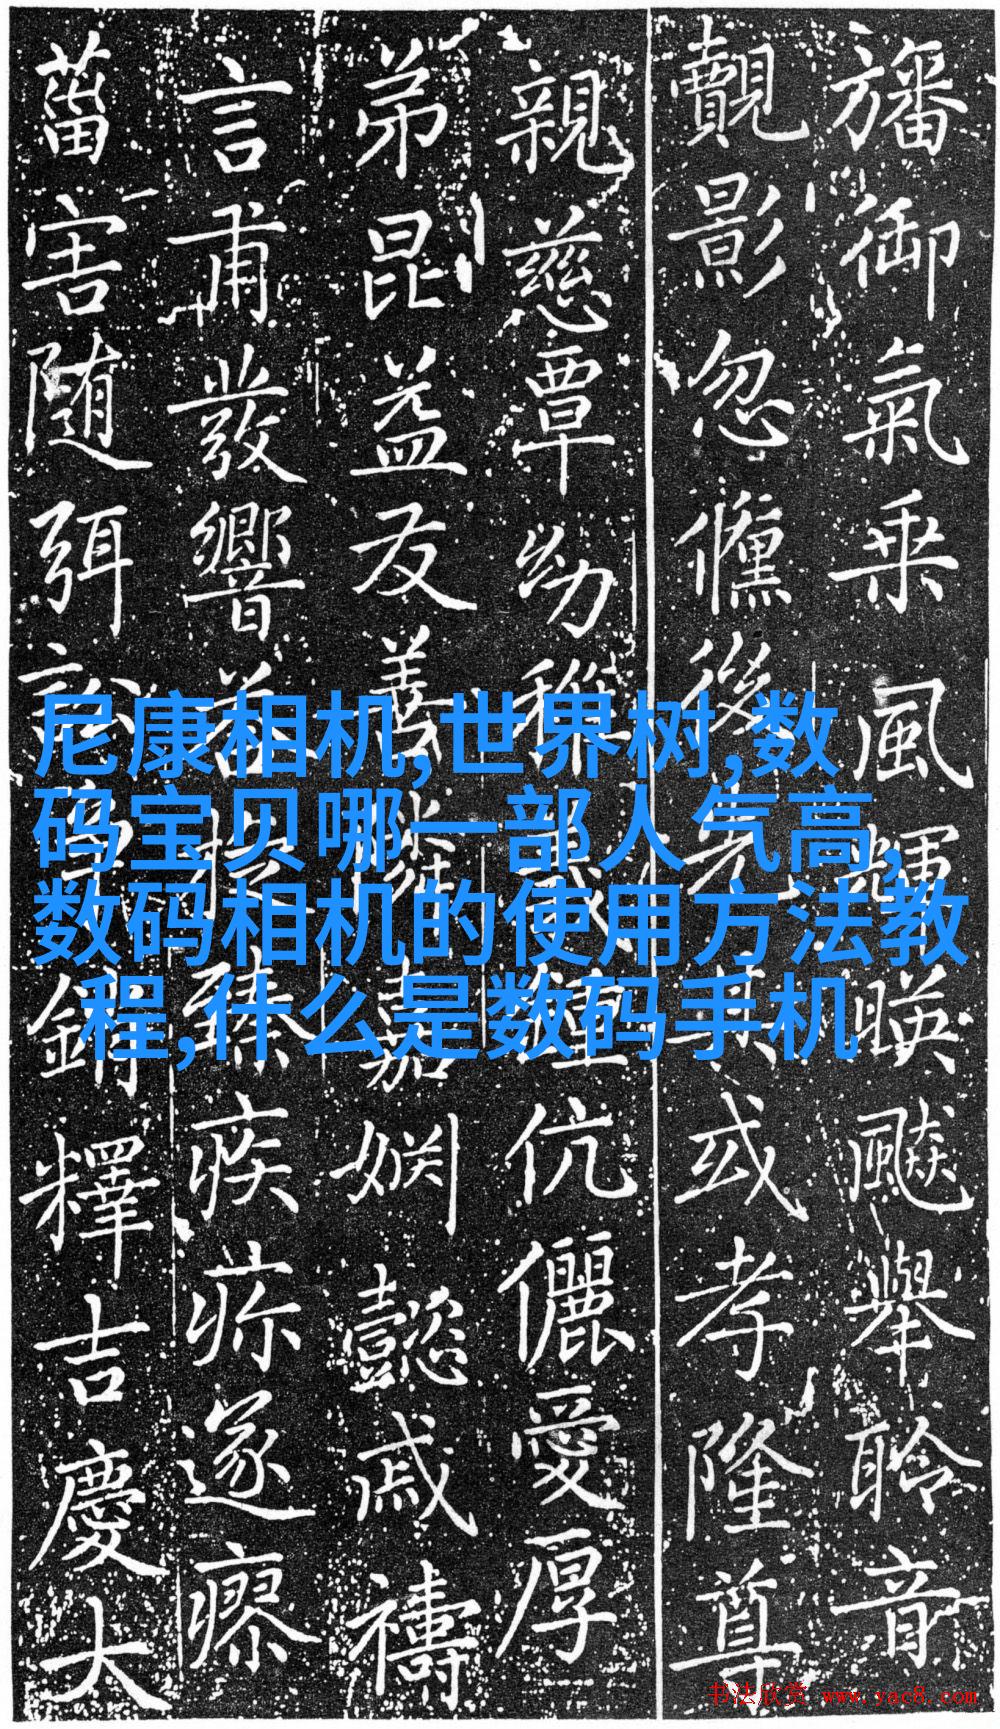 旛御氣乗風暎飈舉聆音
覿影忽後或孝隆尊
親慈覃幼稚伉儷愛厚
弟昆益友善嘉姻懿戚禱
言甫發響臻疾疹遂瘳
菑害随弭訟銷釋吉慶大
尼康相机,世界树,数
码宝贝哪一部人气高,
数码相机的使用方法教
程,什么是数码手机
书法欣赏 www.yac8.com